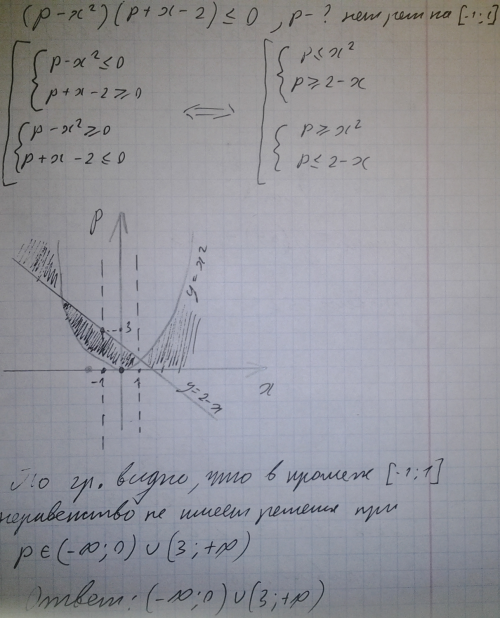 (p-x²)(p+x-2) ≤ 0, p-? нет реш на [-1;1]
[ { p-x² ≤ 0
p+x-2 ≥ 0
{ p-x² ≥ 0
p+x-2 ≤ 0
⟺
[ { p ≤ x²
p ≥ 2-x
{ p ≥ x²
p ≤ 2-x
p
y=x²
3
-1
1
x
y=2-x
По гр. видно, что в промеж [-1;1]
неравенство не имеет решения при
p∈(-∞;0)∪(3;+∞)
Ответ: (-∞;0)∪(3;+∞)